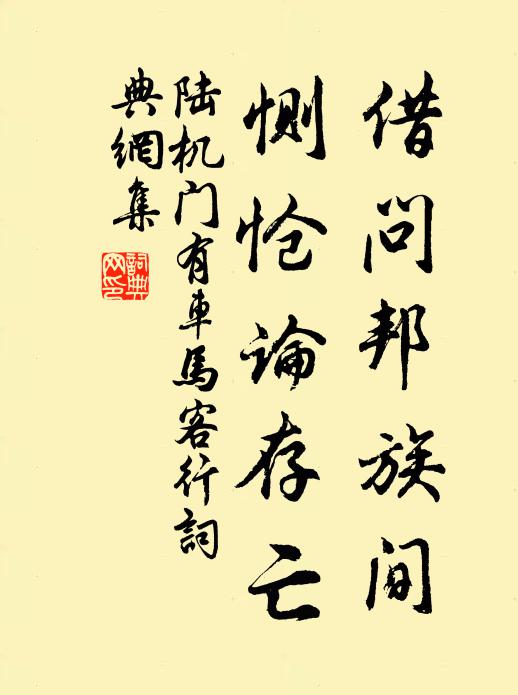 借问邦族间
恻怆論存亡
陆机门有車馬客行詞
典網集
詞典网印